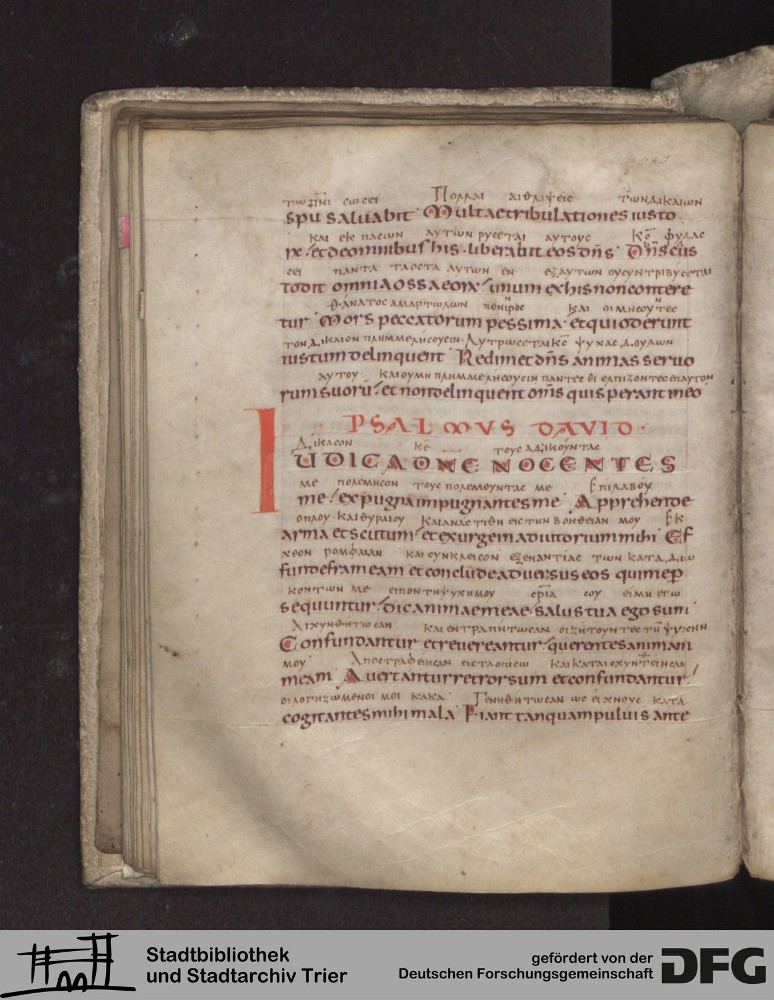 τω πνι σωσει Πολλαι αι θλιψεις των δικαιων
spu saluabit Multae tribulationes iusto
και εκ πασων αυτων ρυσεται αυτους κς φυλας
rx et de omnibus his liberabit eos dns Dns cus
σει παντα τα οστα αυτων εν εξ αυτων ου συντριβυσεται
todit omnia ossa eorx unum ex his non contere
θανατος αμαρτωλων πονιρος και οι μισουντες
tur Mors peccatorum pessima et qui oderunt
τον δικαιον πλημμελησουσιν Λυτρωσεται κς ψυχας δουλων
iustum delinquent Redimet dns animas seruo
αυτου και ου μη πλημμελησουσιν παντες οι ελπιζοντες επ αυτον
rum suorū et non delinquent oms qui sperant in eo
PSALMUS DAVID
Δικασον κε τους αδικουντας
IUDICA DNE NOCENTES
με πολεμησον τους πολεμουντας με Επιλαβου
me expugna impugnantes me Apprehende
οπλου και θυραιου και αναστιθη εις την βοηθειαν μου Εκ
arma et scutum et exurge in adiutorium mihi Ef
χεον ρομφαιαν και συνκλεισον εξεναντιας των καταδιω
funde frameam et conclude aduersus eos qui me p
κοντων με ειπον τη ψυχη μου σριa σου ειμη εγω
sequuntur dic animae meae salus tua ego sum
Αισχυνθητωσαν και εντραπητωσαν οι ζητουντες τη ψυχην
Confundantur et reuereantur querentes animam
μου Αποστραφειησαν εις τα οπισω και καταισχυντειησαν
meam Auertantur retrorsum et confundantur
οι λογηζωμενοι μοι κακα Γενηθητωσαν ως ει χνους κατα
cogitantes mihi mala Fiant tanquam puluis ante
Stadtbibliothek
und Stadtarchiv Trier
gefördert von der
Deutschen Forschungsgemeinschaft
DFG